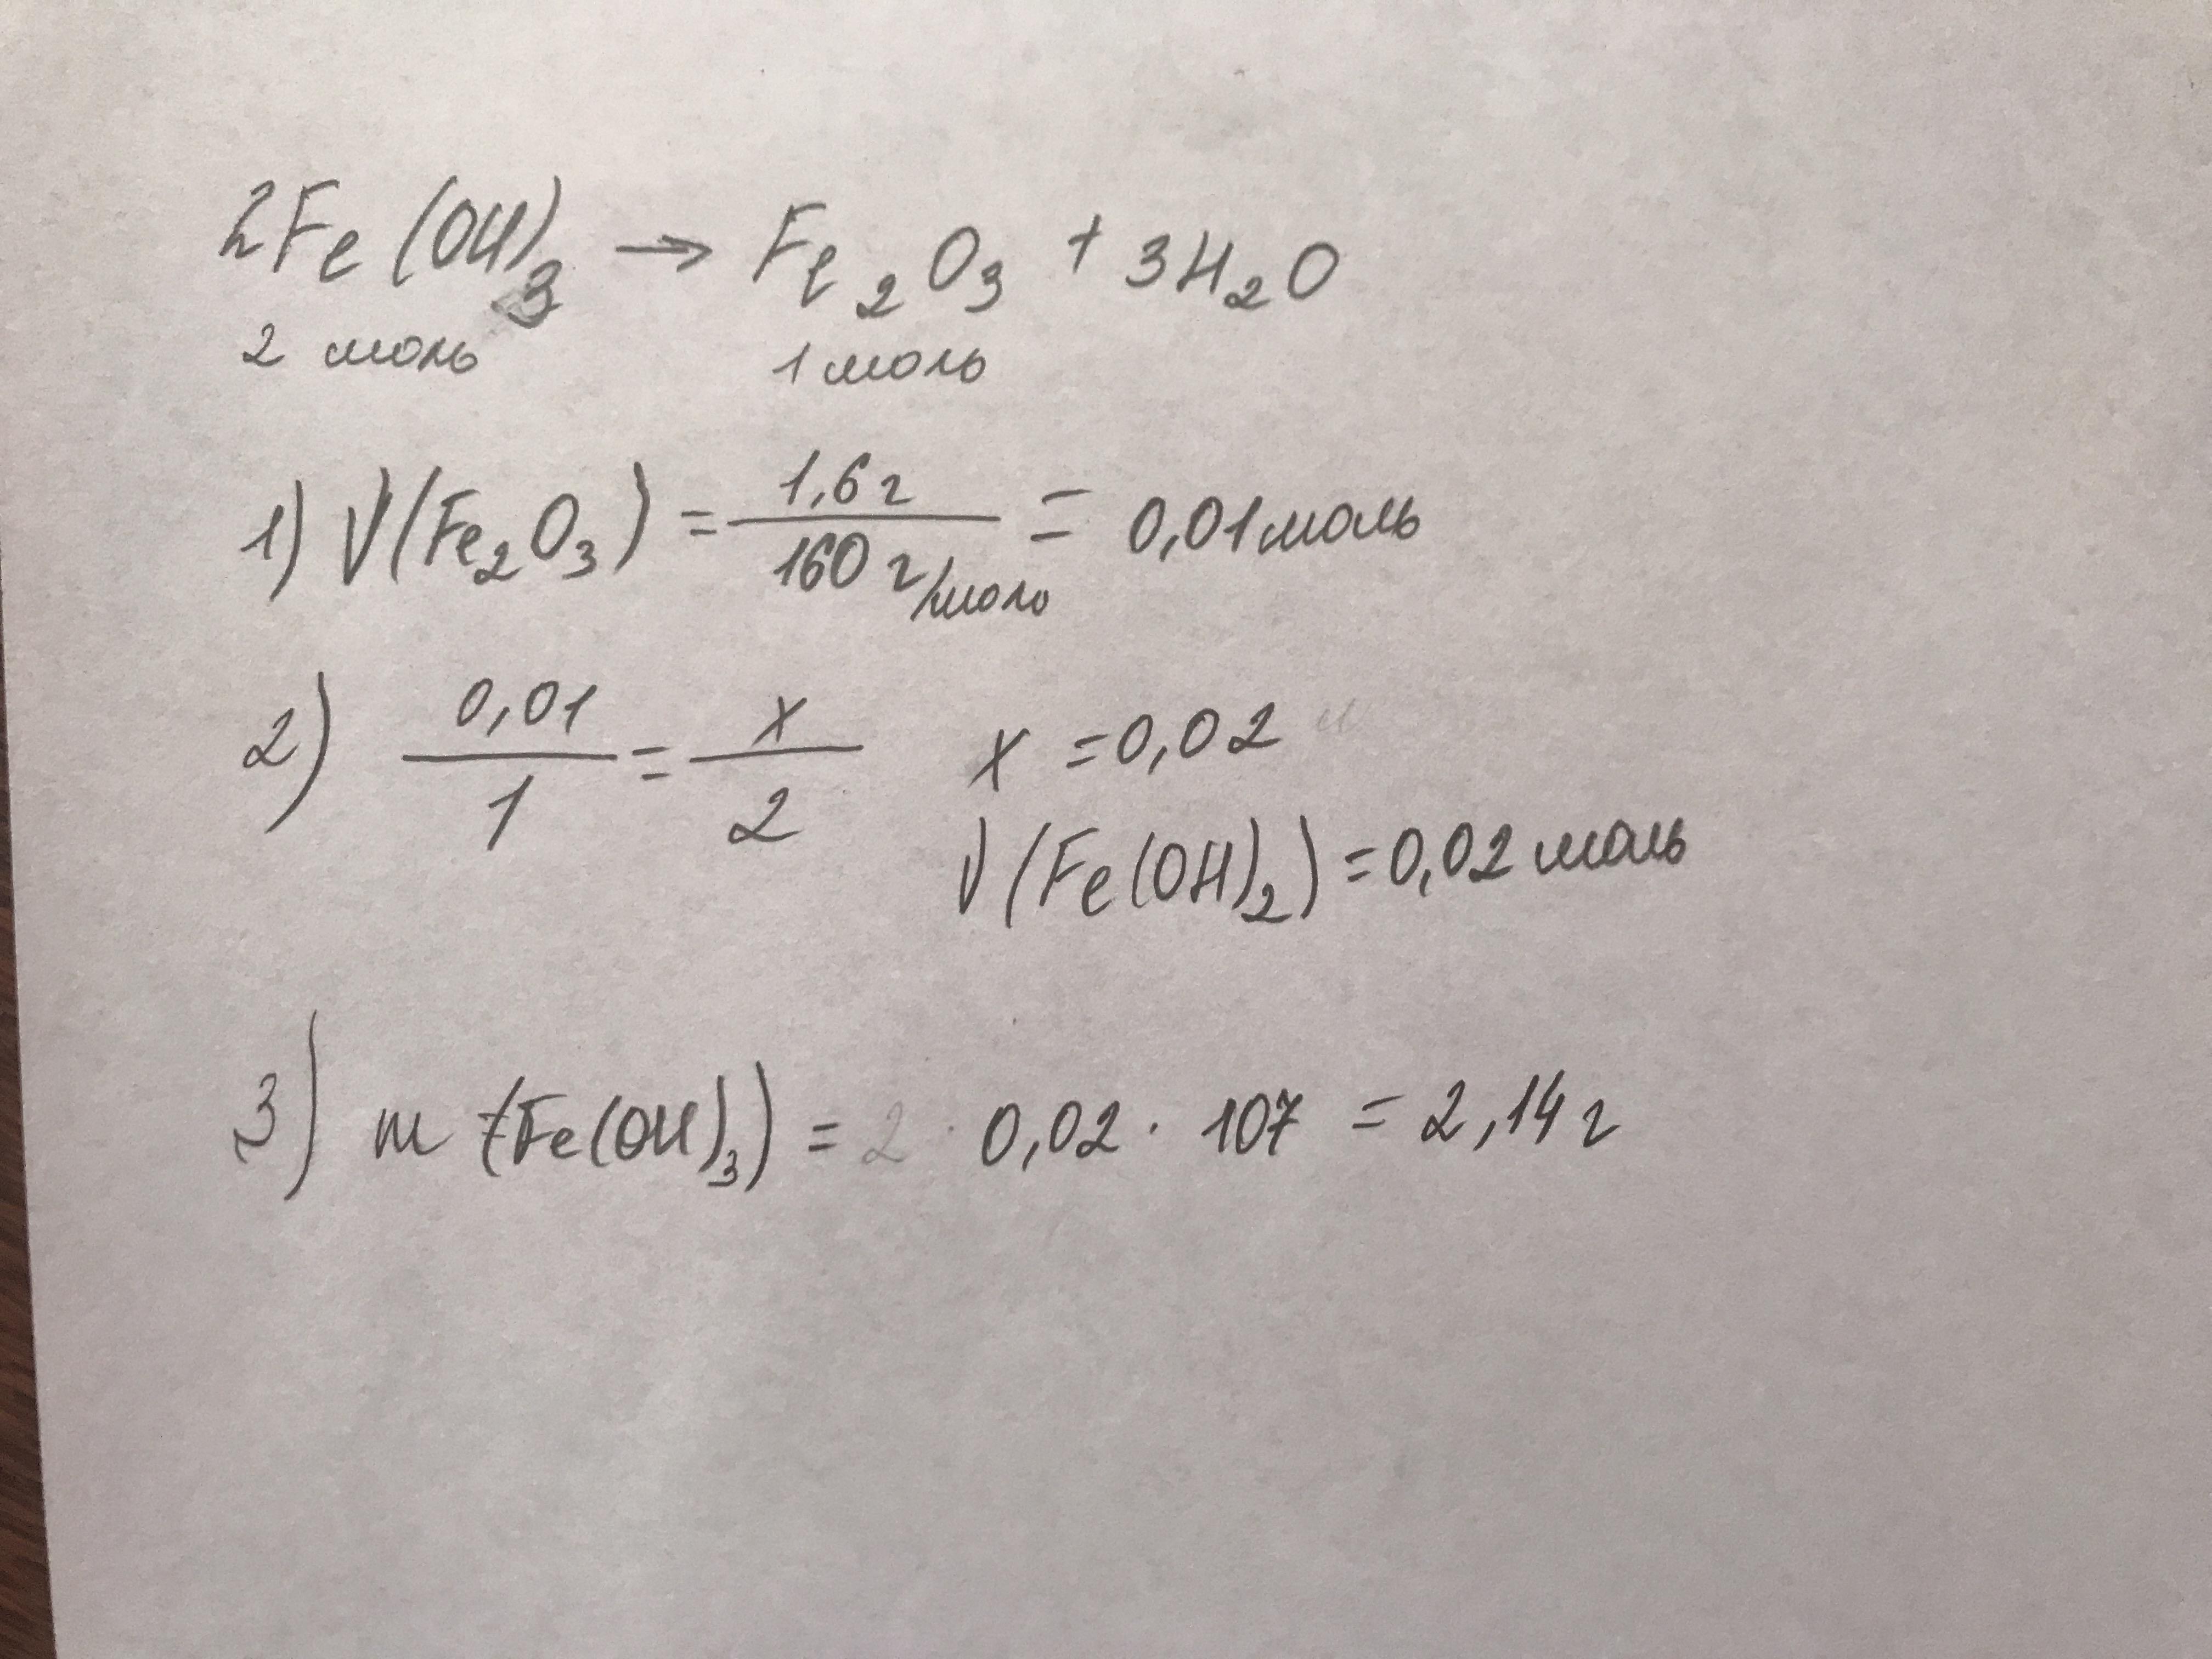 2Fe(OH)₃ → Fe₂O₃ + 3H₂O
2 моль 1 моль
1) ν(Fe₂O₃) = 1,6 г / 160 г/моль = 0,01 моль
2) 0,01 / 1 = x / 2 x = 0,02
ν(Fe(OH)₂) = 0,02 моль
3) m (Fe(OH)₃) = 2 · 0,02 · 107 = 2,14 г